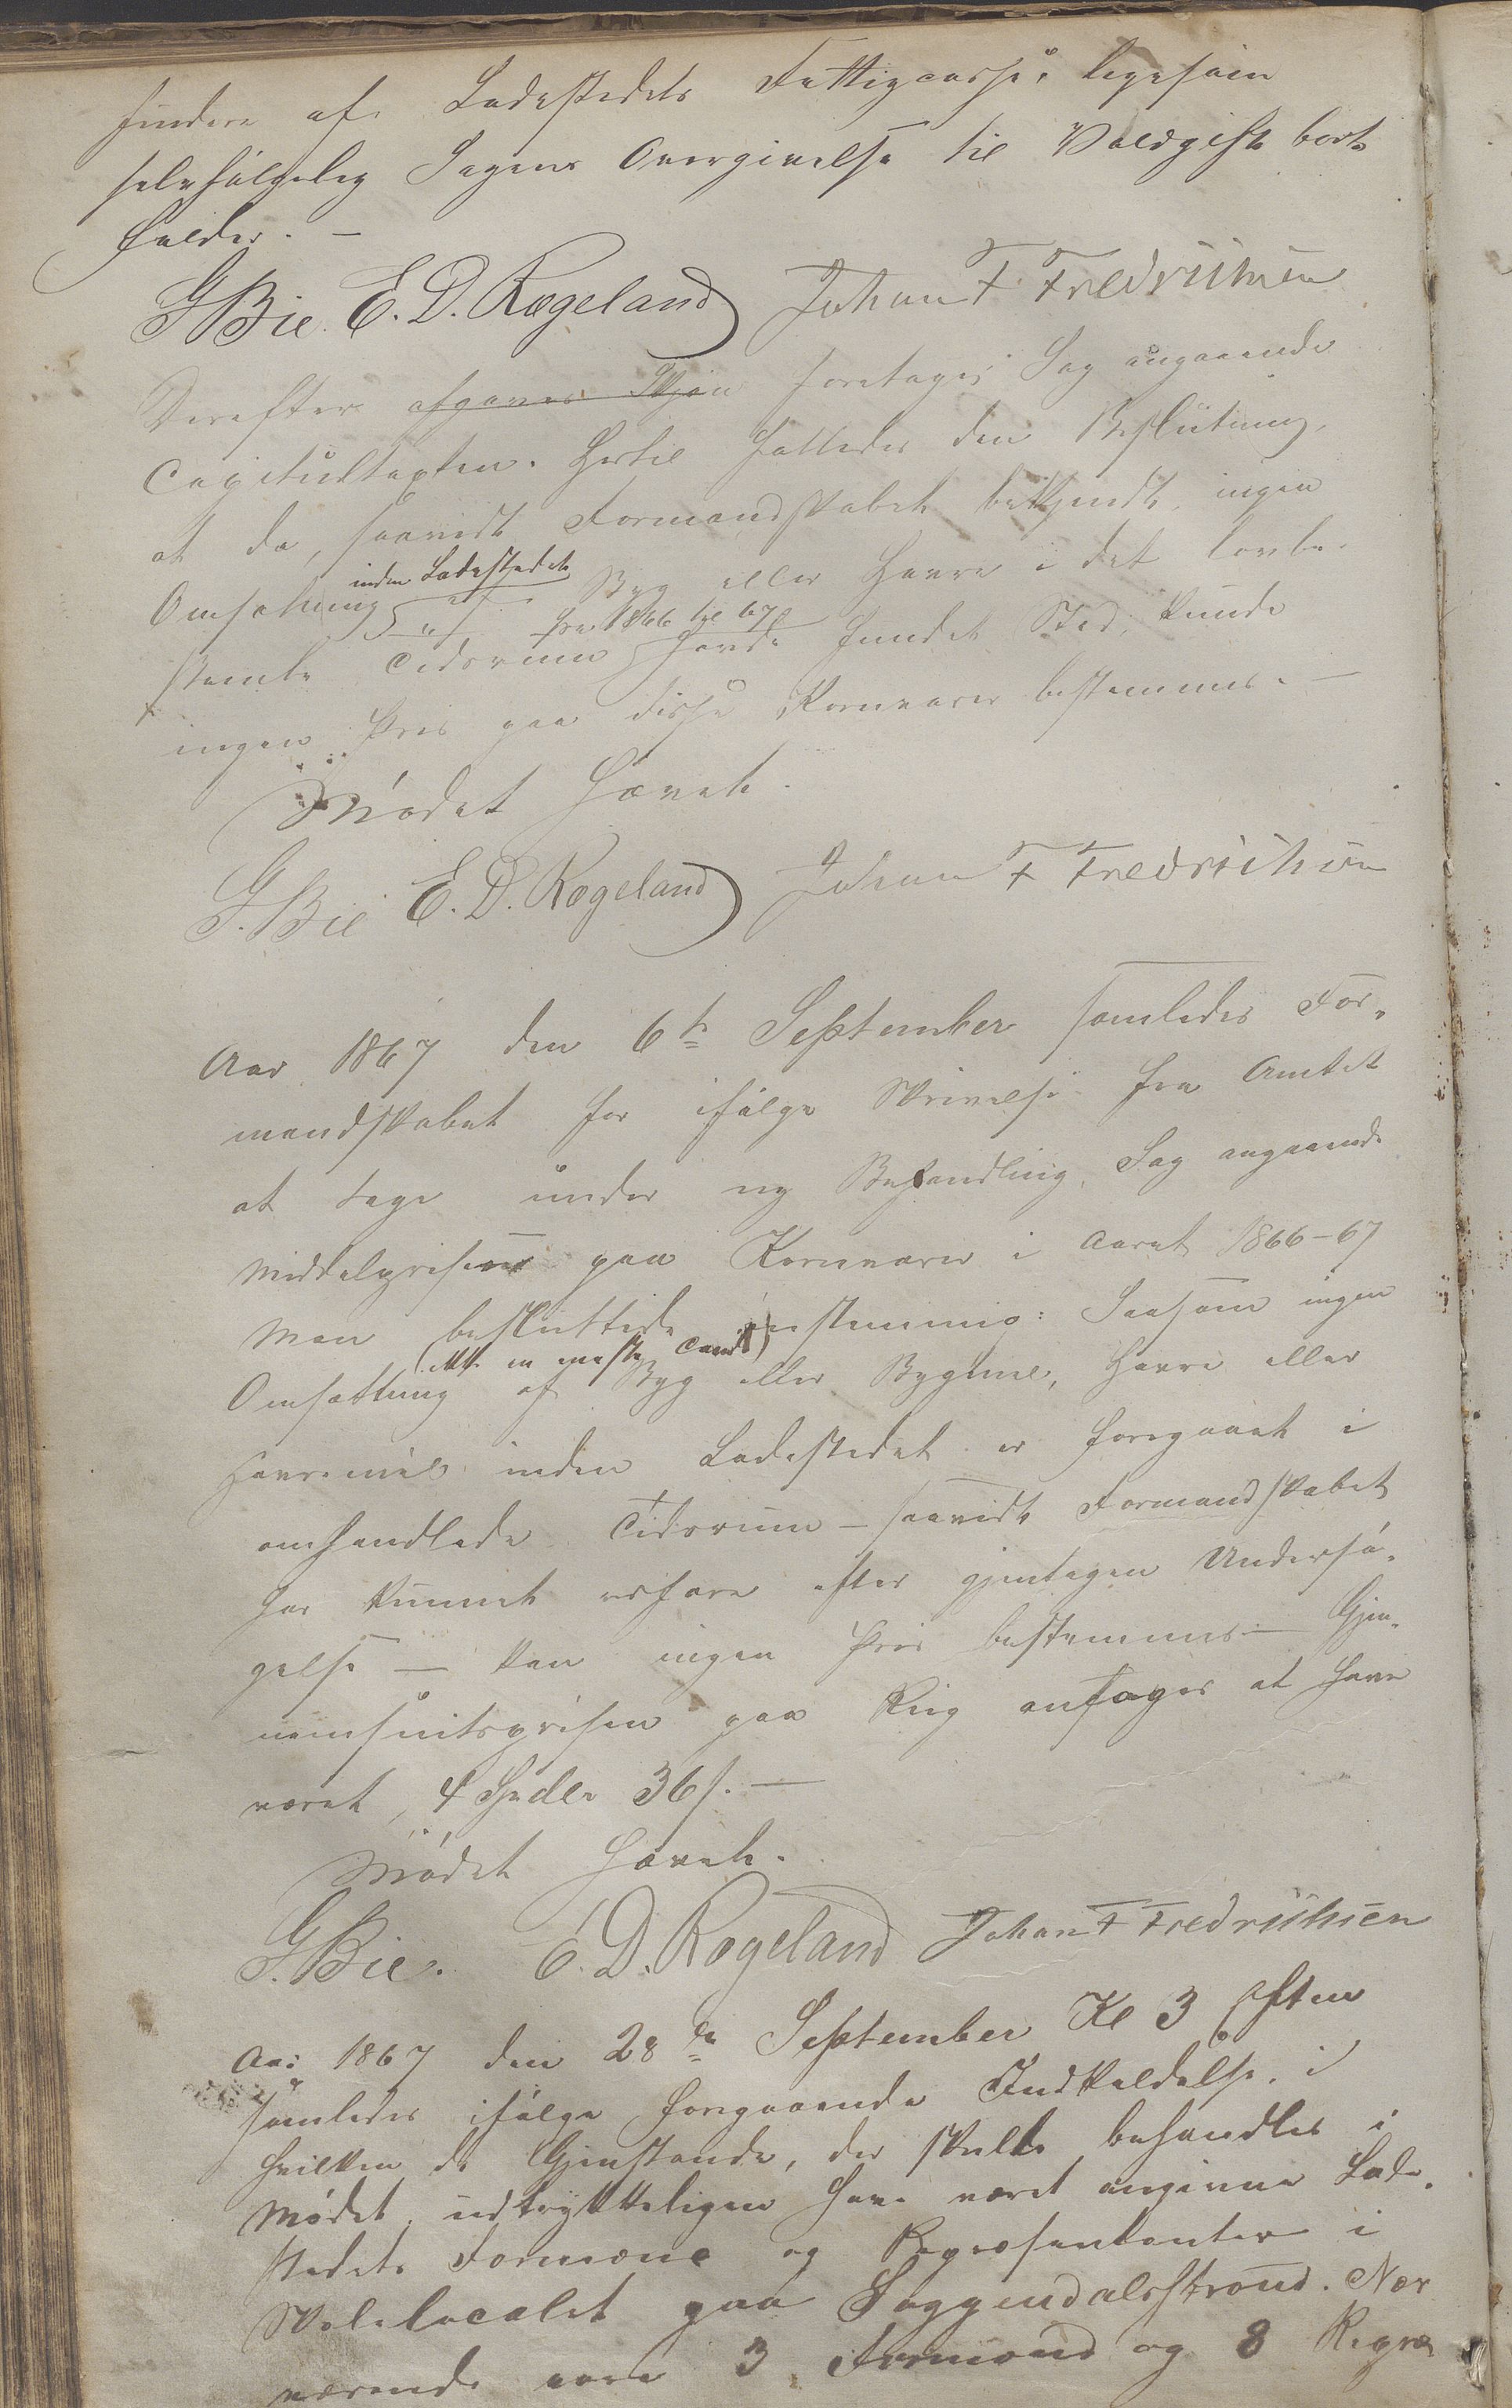 findes af Ladestedets Fattigcasse, ligesom
selvfølgelig Sagens Overgivelse til Voldgift bort
falder. —
G Bie E. D. Rægeland Johan F Fredrichsen
Derefter afgaves Skjøn foretages Sag angaaende
Capitultaxten. Hertil fattedes den Beslutning,
at da, saavidt Formandskabet bekjendt, ingen
inden Ladestedet
Omsætning af Byg eller Havre i det lovbe-
fra 1866 til 67
stemte Tidsrum havde fundet Sted, kunde
ingen Pris paa disse Kornvarer bestemmes. —
Mødet hævet.
G. Bie E. D. Rægeland Johan F Fredrichsen
Aar 1867 den 6te September samledes For-
mandskabet for ifølge Skrivelse fra Amtet
at tage under ny Behandling, Sag angaaende
Middelprisen paa Kornvarer i Aaret 1866-67
Man besluttede eenstemmig: Saasom ingen
Omsætning af Byg eller Bygmel, Havre eller
Havremel inden Ladestedet er foregaaet i
omhandlede Tidsrum — saavidt Formandskabet
har kunnet erfare efter gjentagen Undersø-
gelse — kan ingen Pris bestemmes — Gjen-
nemsnitsprisen paa Rug antages at have
været, 4 Spdlr 36 s. —
Mødet hævet.
G. Bie. E. D. Rægeland Johan F Fredrichsen
Aar 1867 den 28de September Kl 3 Eftm
samledes ifølge foregaaende Indkaldelse, i
hvilken de Gjenstande, der skulde behandles i
Mødet, udtrykkeligen have været angivne Lade-
stedets Formænd og Repræsentanter i
Skolelocalet paa Soggendalsstrand. Nær
værende vare 3 Formænd og 8 Repræ